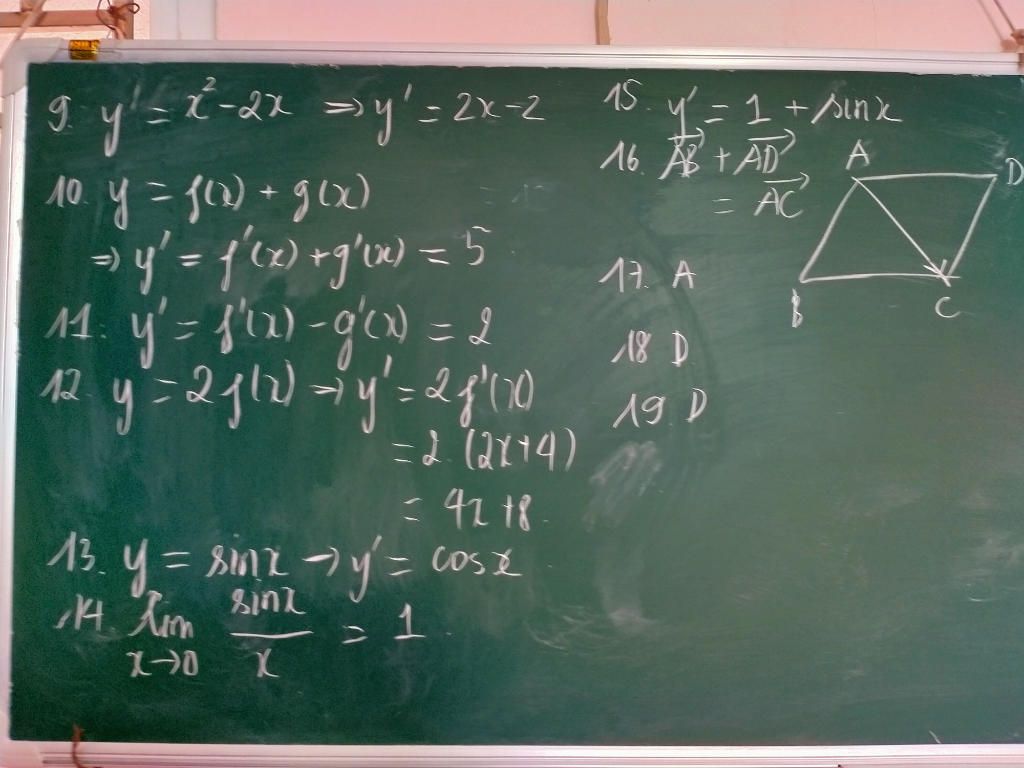 9. y' = x² - 2x => y' = 2x - 2
10. y = f(x) + g(x)
=> y' = f'(x) + g'(x) = 5
11. y' = f'(x) - g'(x) = 2
12. y = 2f(x) → y' = 2f'(x)
= 2.(2x+4)
= 4x+8.
13. y = sinx → y' = cosx
14. lim sinx
x→0 x = 1.
15. y' = 1 + sinx
16. AB→ + AD→
= AC→
A
D
B
C
17. A
18 D
19. D